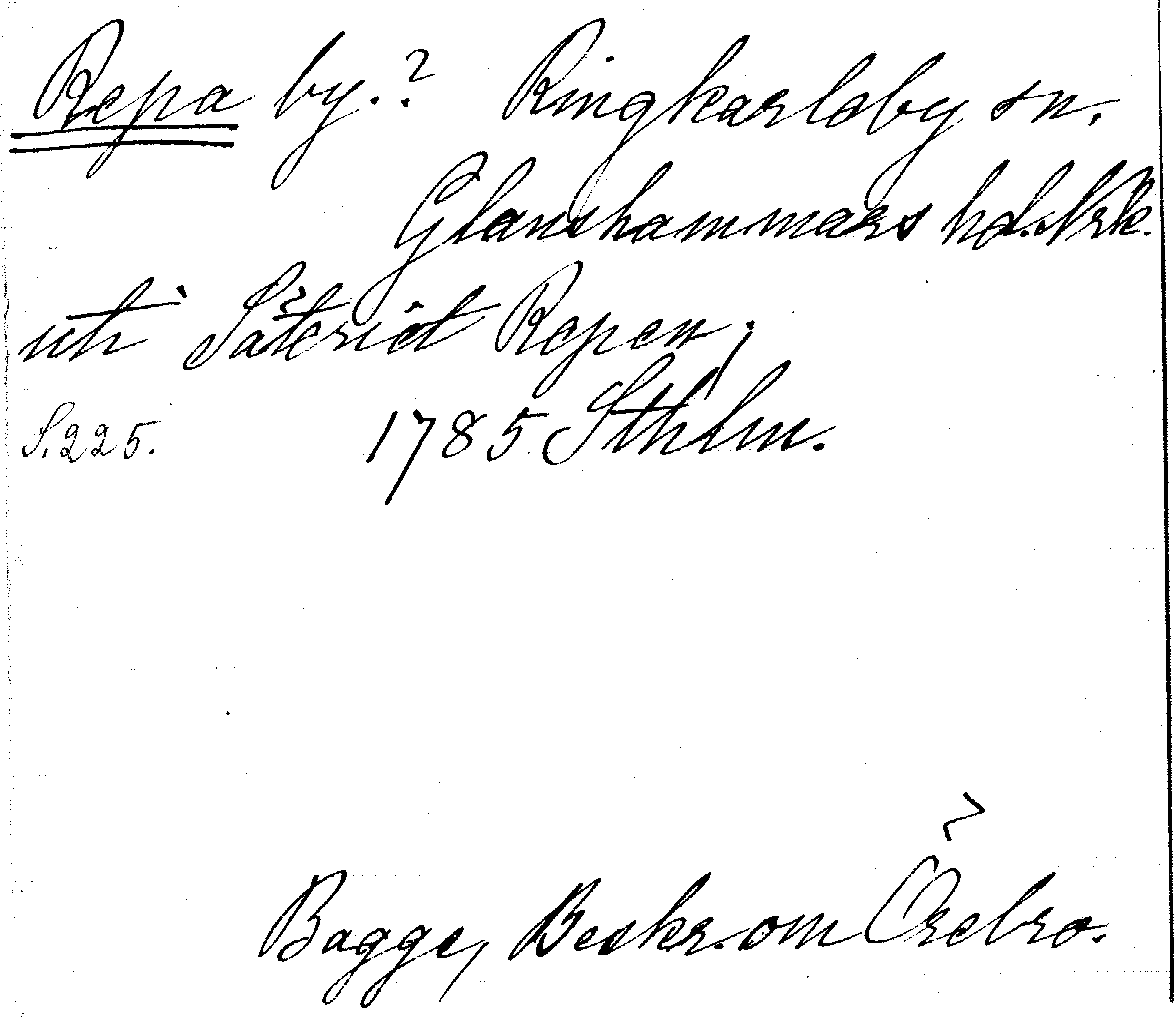 Repa by.? Ringkarleby sn.
Glanshammars hd. Nrk.
uti Säteriet Repen,
S. 225. 1785 Sthlm.
Bagge, Beskr. om Örebro.